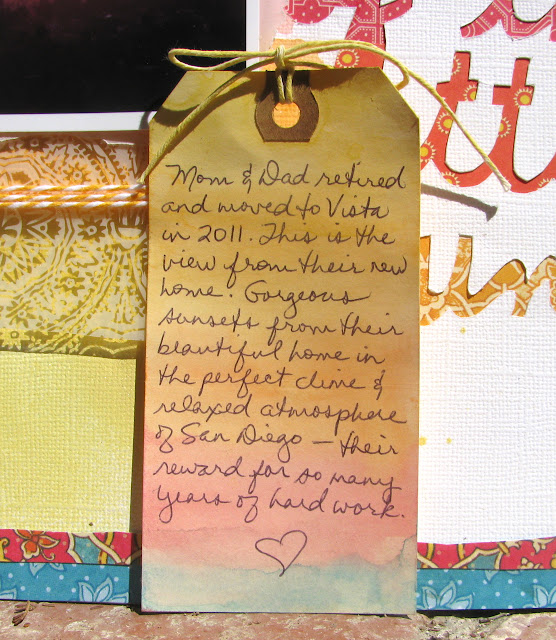 Mom & Dad retired
and moved to Vista
in 2011. This is the
view from their new
home. Gorgeous
sunsets from their
beautiful home in
the perfect clime &
relaxed atmosphere
of San Diego — their
reward for so many
years of hard work.